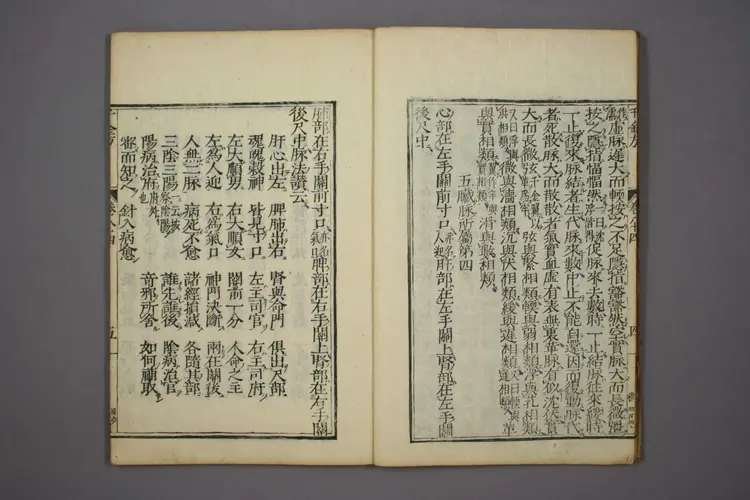 虛脉遲大而軟按之不足隱指豁豁然空實脉大而長微强
按之隱指愊愊然 促脉來去數時一止結脉往來緩時
一止復來脉結者生代脉來數中止不能自還因而復動脉代
者死散脉大而散散者氣實血虛有表無裏革脉有似沉伏實
大而長微弦 弦與緊相類 與弱相類浮與芤相類
微與濇相類沉與伏相類緩與遲相類 革
與實相類 滑與數相類
五臟脉所屬第四
心部在左手關前寸口亦名人迎肝部在左手關上腎部在左手關
後尺中
肺部在右手關前寸口亦名氣口脾部在右手關上腎部在右手關
後尺中脉法讚云
肝心出左 脾肺出右 腎與命門 俱出尺部
魂魄穀神 皆見寸口 左主司官 右主司府
左大順男 右大順女 關前一分 人命之主
左為人迎 右為氣口 神門決斷 兩在關後
人無二脉 病死不愈 諸經損減 各隨其部
三陰三陽 一云按察陰陽 誰先誰後 陰病治官
陽病治府 府外也 奇邪所舍 如何補取
審而知之 針入病愈
千金方
五